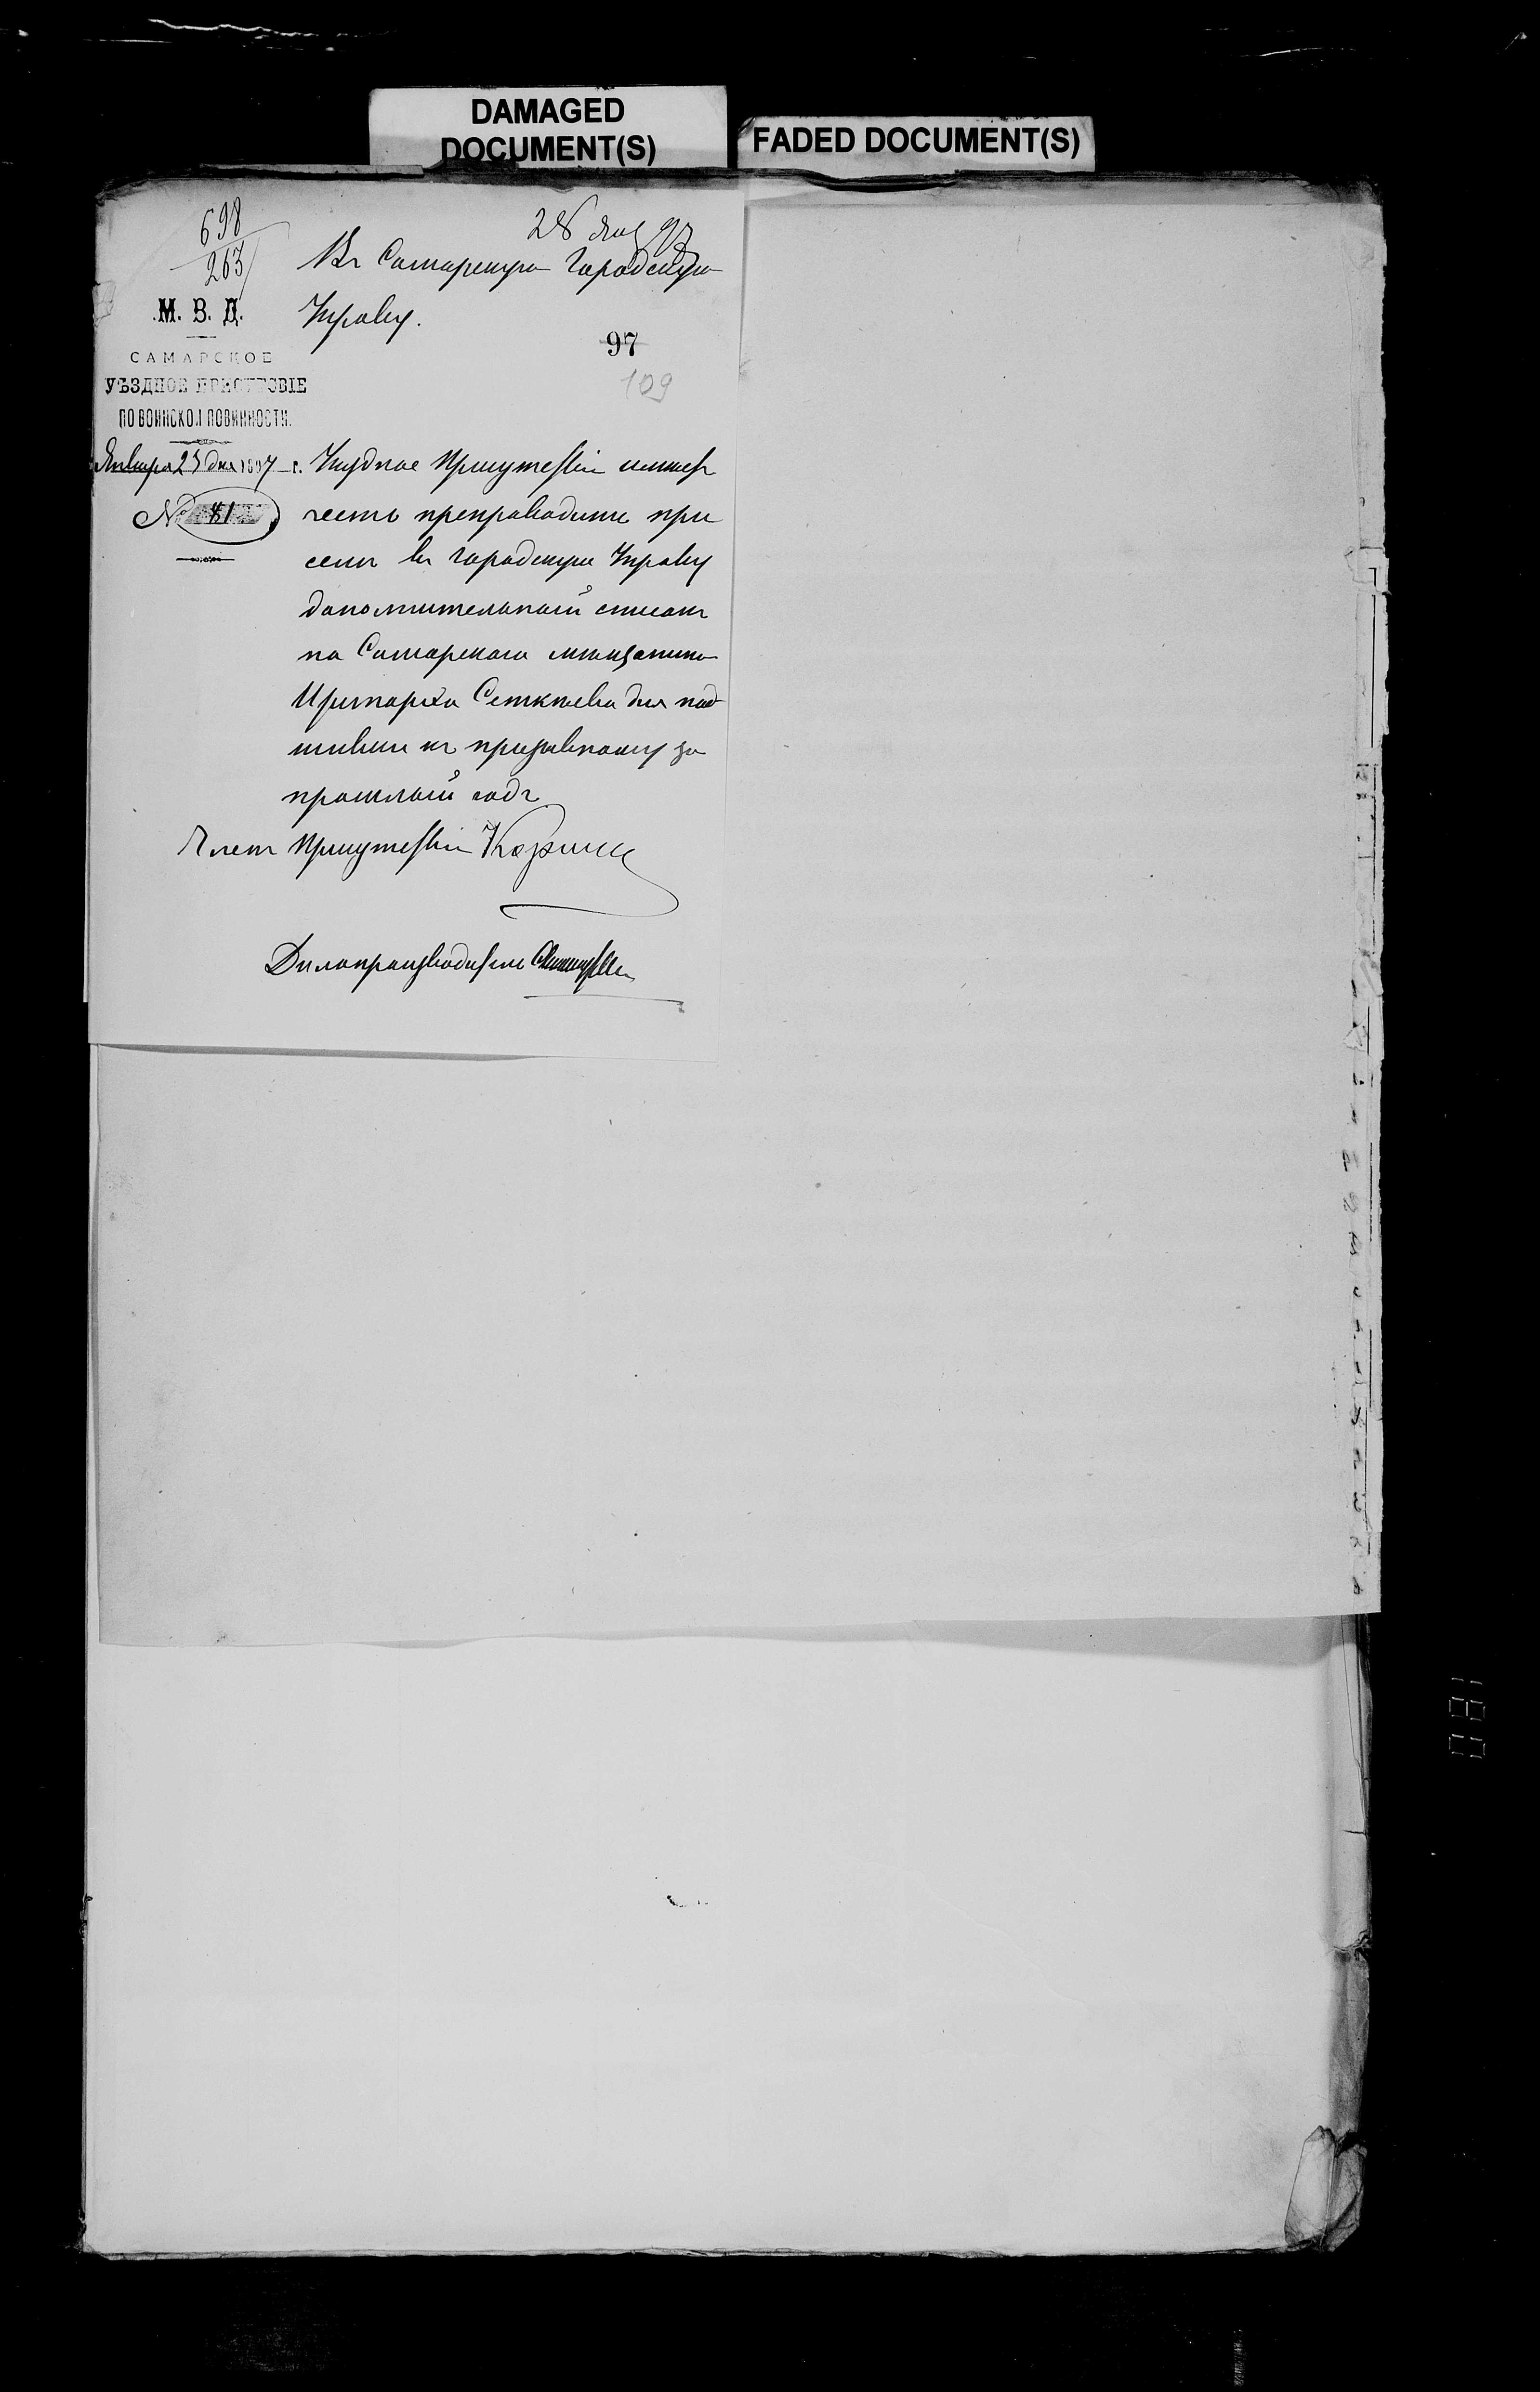 DAMAGED
DOCUMENT(S)
FADED DOCUMENT(S)
698
263
28 Янв 97
Въ Самарскую Городскую
Управу.
М. В. Д.
97
109
САМАРСКОЕ
УѢЗДНОЕ ПРИСУТСТВІЕ
ПО ВОИНСКОЙ ПОВИННОСТИ.
Января 25 дня 1897 г.
№ 81
Уѣздное Присутствіе имѣетъ
честь препроводить при
семъ въ Городскую Управу
дополнительный списокъ
на Самарскаго мѣщанина
для под
шивки къ призывному за
прошлый годъ
Членъ Присутствія
Дѣлопроизводитель
180